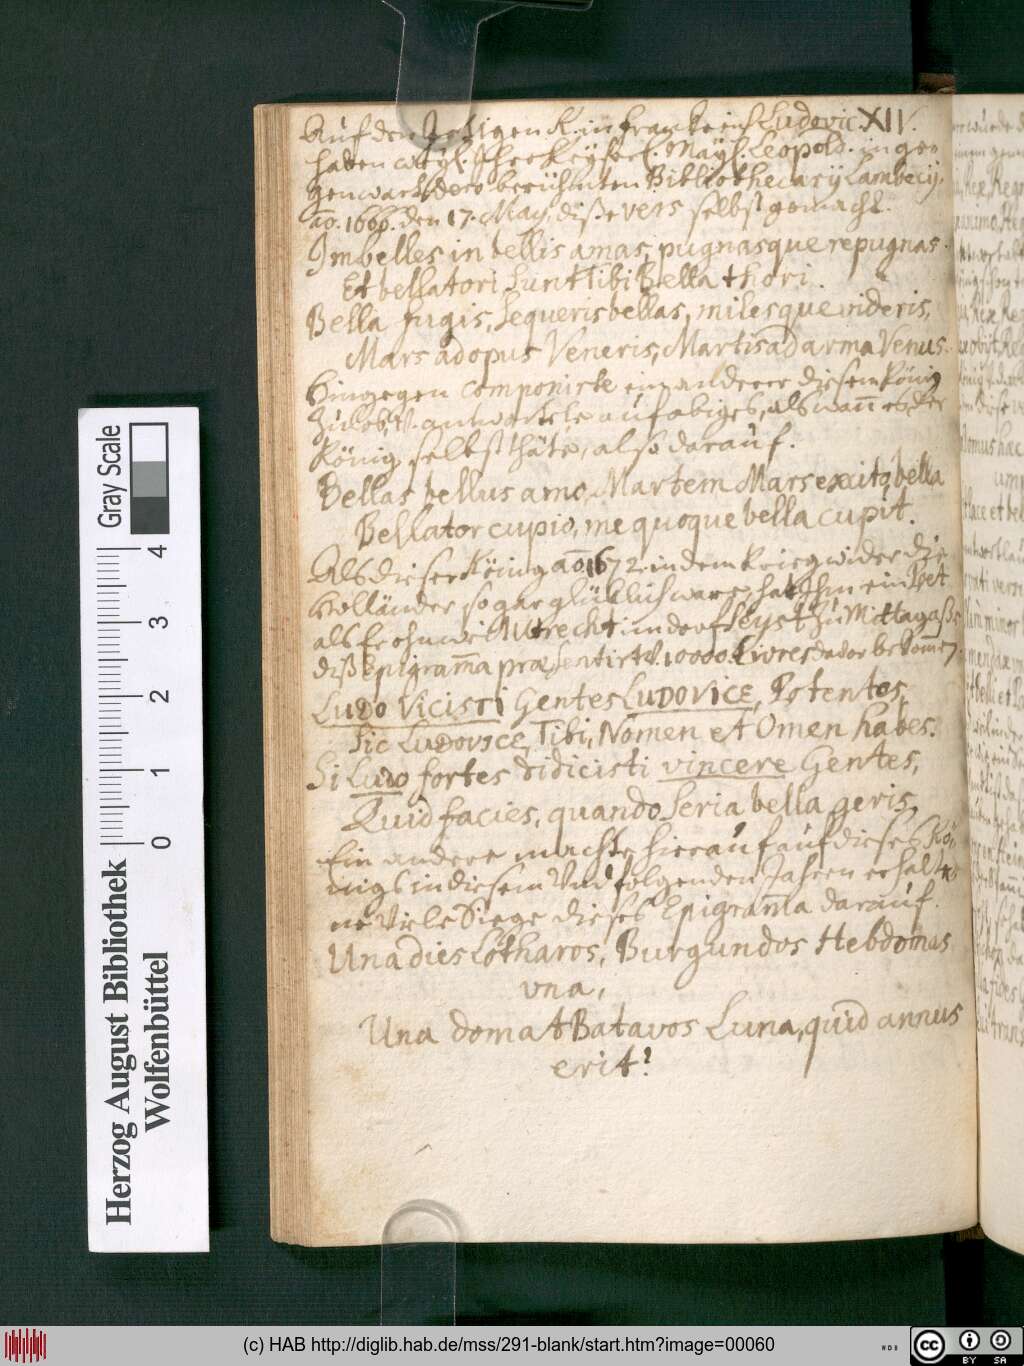 Auf den Jetzigen K. in Franckreich Ludovic. XIV.
haben weyl. Ihre Keyserl. Mayt. Leopold. in ge-
genwart dero berühmten Bibliothecarij Lambecij,
ao. 1666. den 17. May, diße vers selbst gemacht.
Imbelles in bellis amas, pugnasque repugnas.
Et bellatori sunt tibi Bella thori.
Bella fugis, sequeris bellas, milesque videris,
Mars ad opus Veneris, Martis ad arma Venus.
Hingegen componirte ein anderer diesem König
zu lob, V. antwortete auf obiges, als wann es der
König selbst thäte, also darauf.
Bellas bellus amo, Martem Mars excito bella
Bellator cupio, me quoque bella cupit.
Als dieser König ao 1672 in dem Krieg wider die
Holländer so gar glücklich ware, hat Ihm ein Poet
als Er ohnweit Utrecht im dorf Seyst zu Mittag aße
diß Epigramma præsentirt V. 10000. Livres davor bekomen.
Ludo Vicisti Gentes Ludovice, Potentes,
Sic Ludovice, Tibi, Nomen et Omen habes.
Si Ludo fortes didicisti vincere Gentes,
Quid facies, quando seria bella geris,
Ein andere machte hierauf auf dieses Kö-
nigs in diesem Und folgenden Jahren erhalte-
ne Viele Siege dieses Epigramma darauf.
Una dies Lotharos, Burgundos Hebdomas
vna,
Una domat Batavos Luna, quid annus
erit?
Gray Scale
4
3
2
1
0
Herzog August Bibliothek
Wolfenbüttel
(c) HAB http://diglib.hab.de/mss/291-blank/start.htm?image=00060
WDB
cc
BY SA